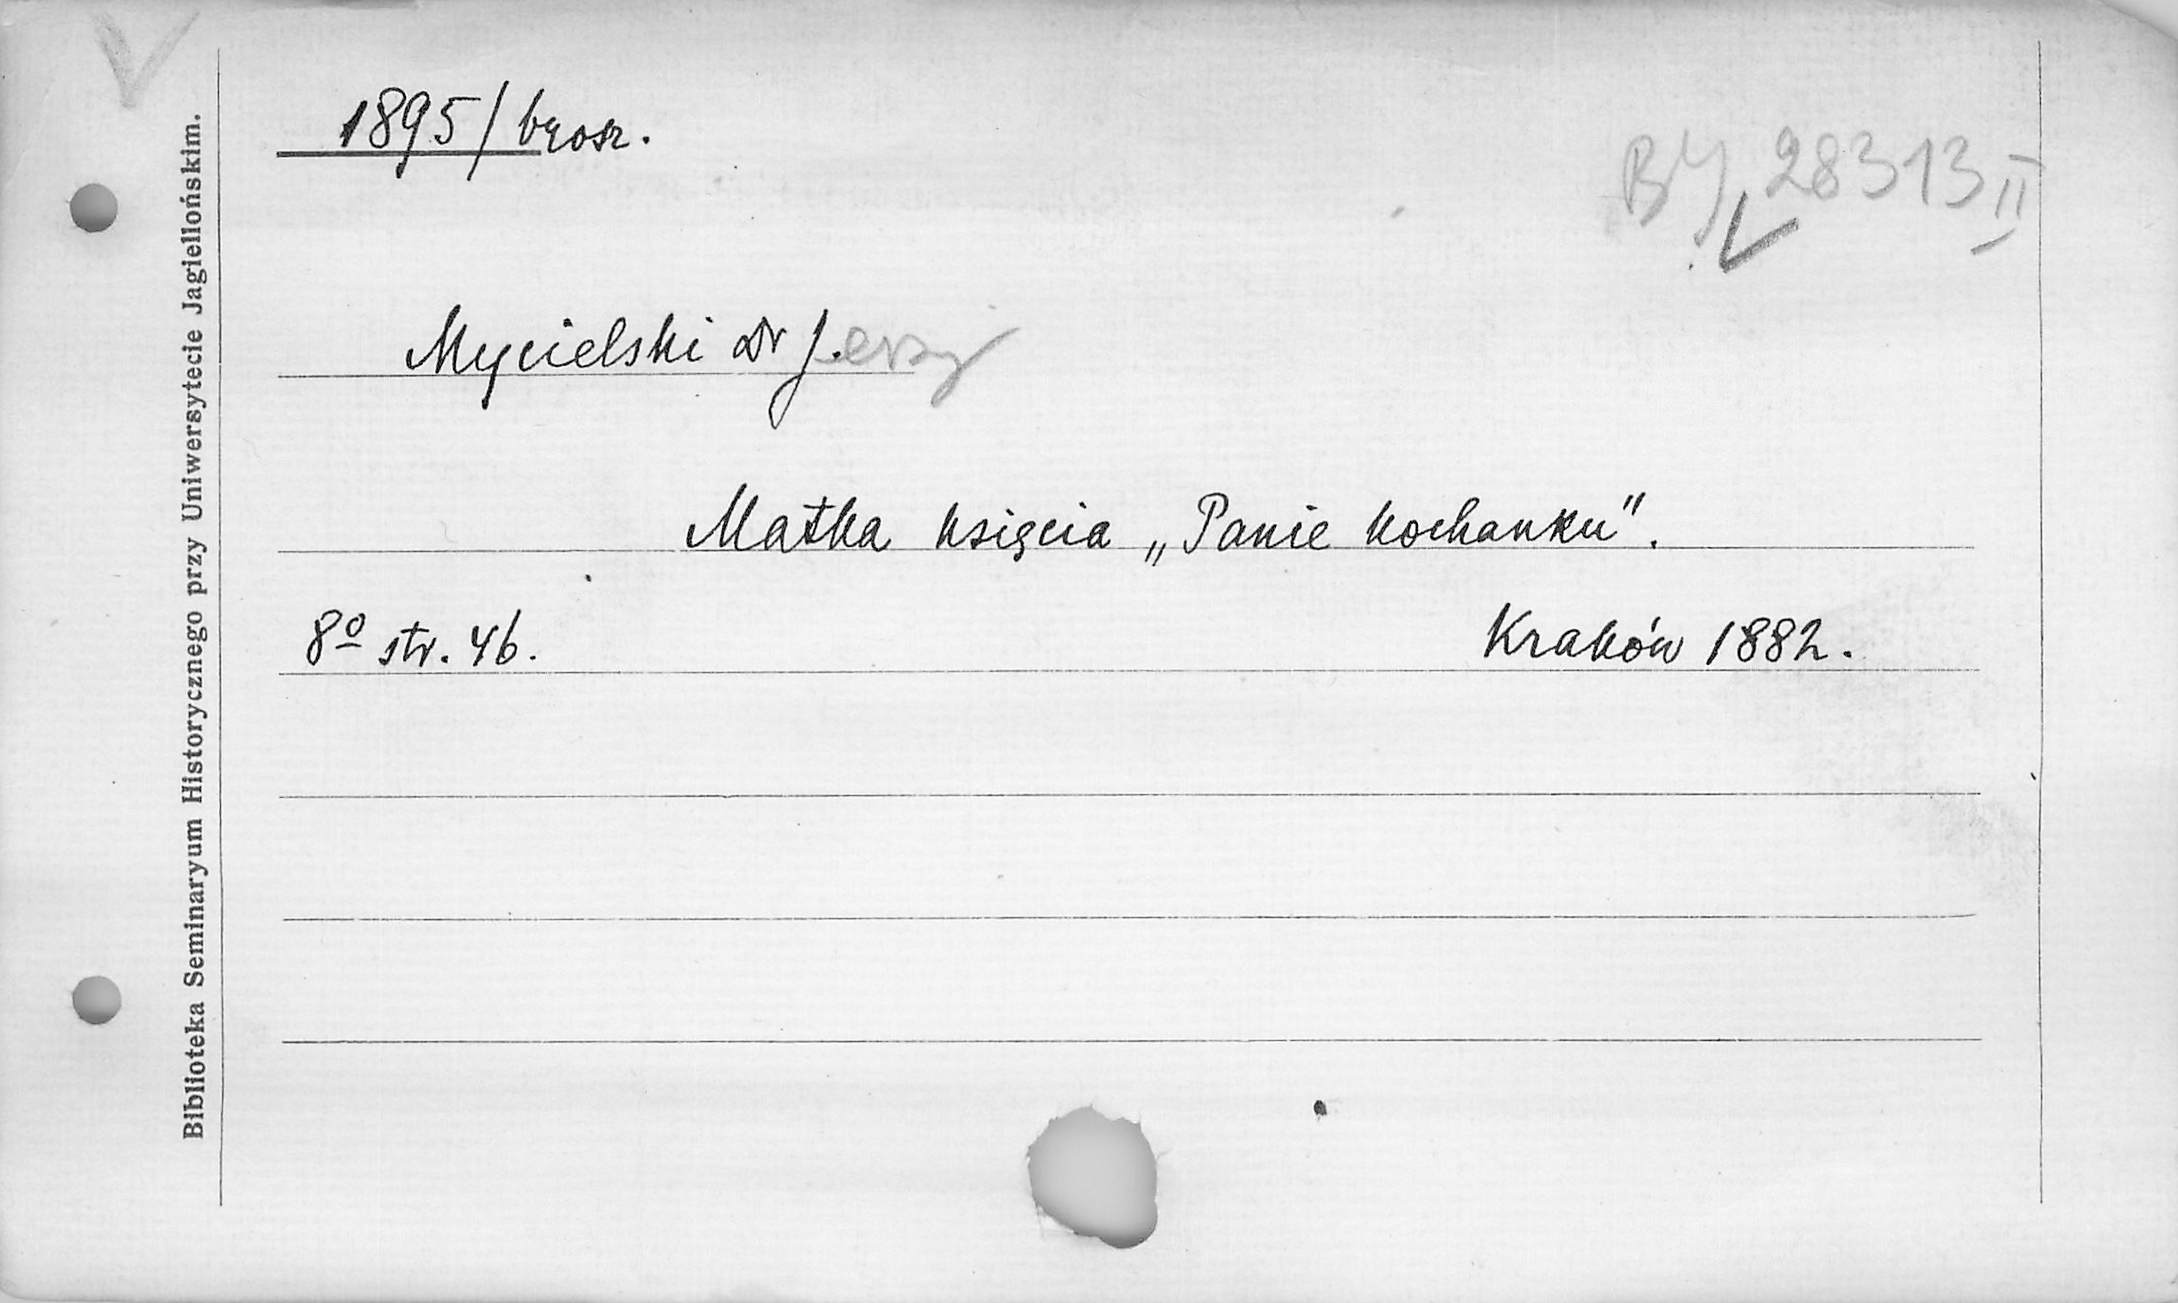 1895/brosz.
BJ 28313 II
Mycielski Dr J.erzy
Matka księcia „Panie kochanku".
8º str. 46.
Kraków 1882.
Biblioteka Seminaryum Historycznego przy Uniwersytecie Jagiellońskim.